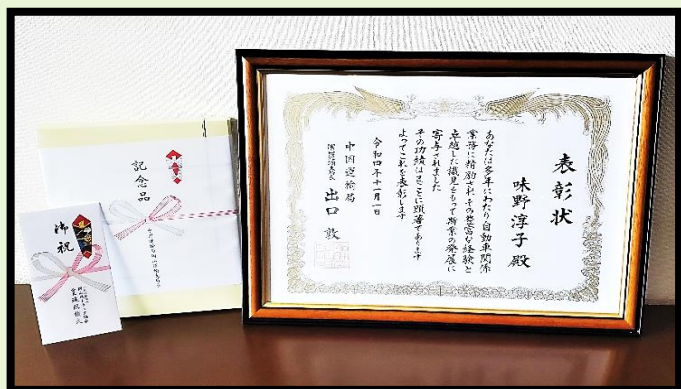 表彰状
味野淳子殿
あなたは多年にわたり自動車関係
業務に精励され その豊富な経験と
卓越した識見をもって斯業の発展に
寄与されました
その功績はまことに顕著であります
よってこれを表彰します
令和四年十一月一日
中国運輸局
出口敦
記念品
御祝